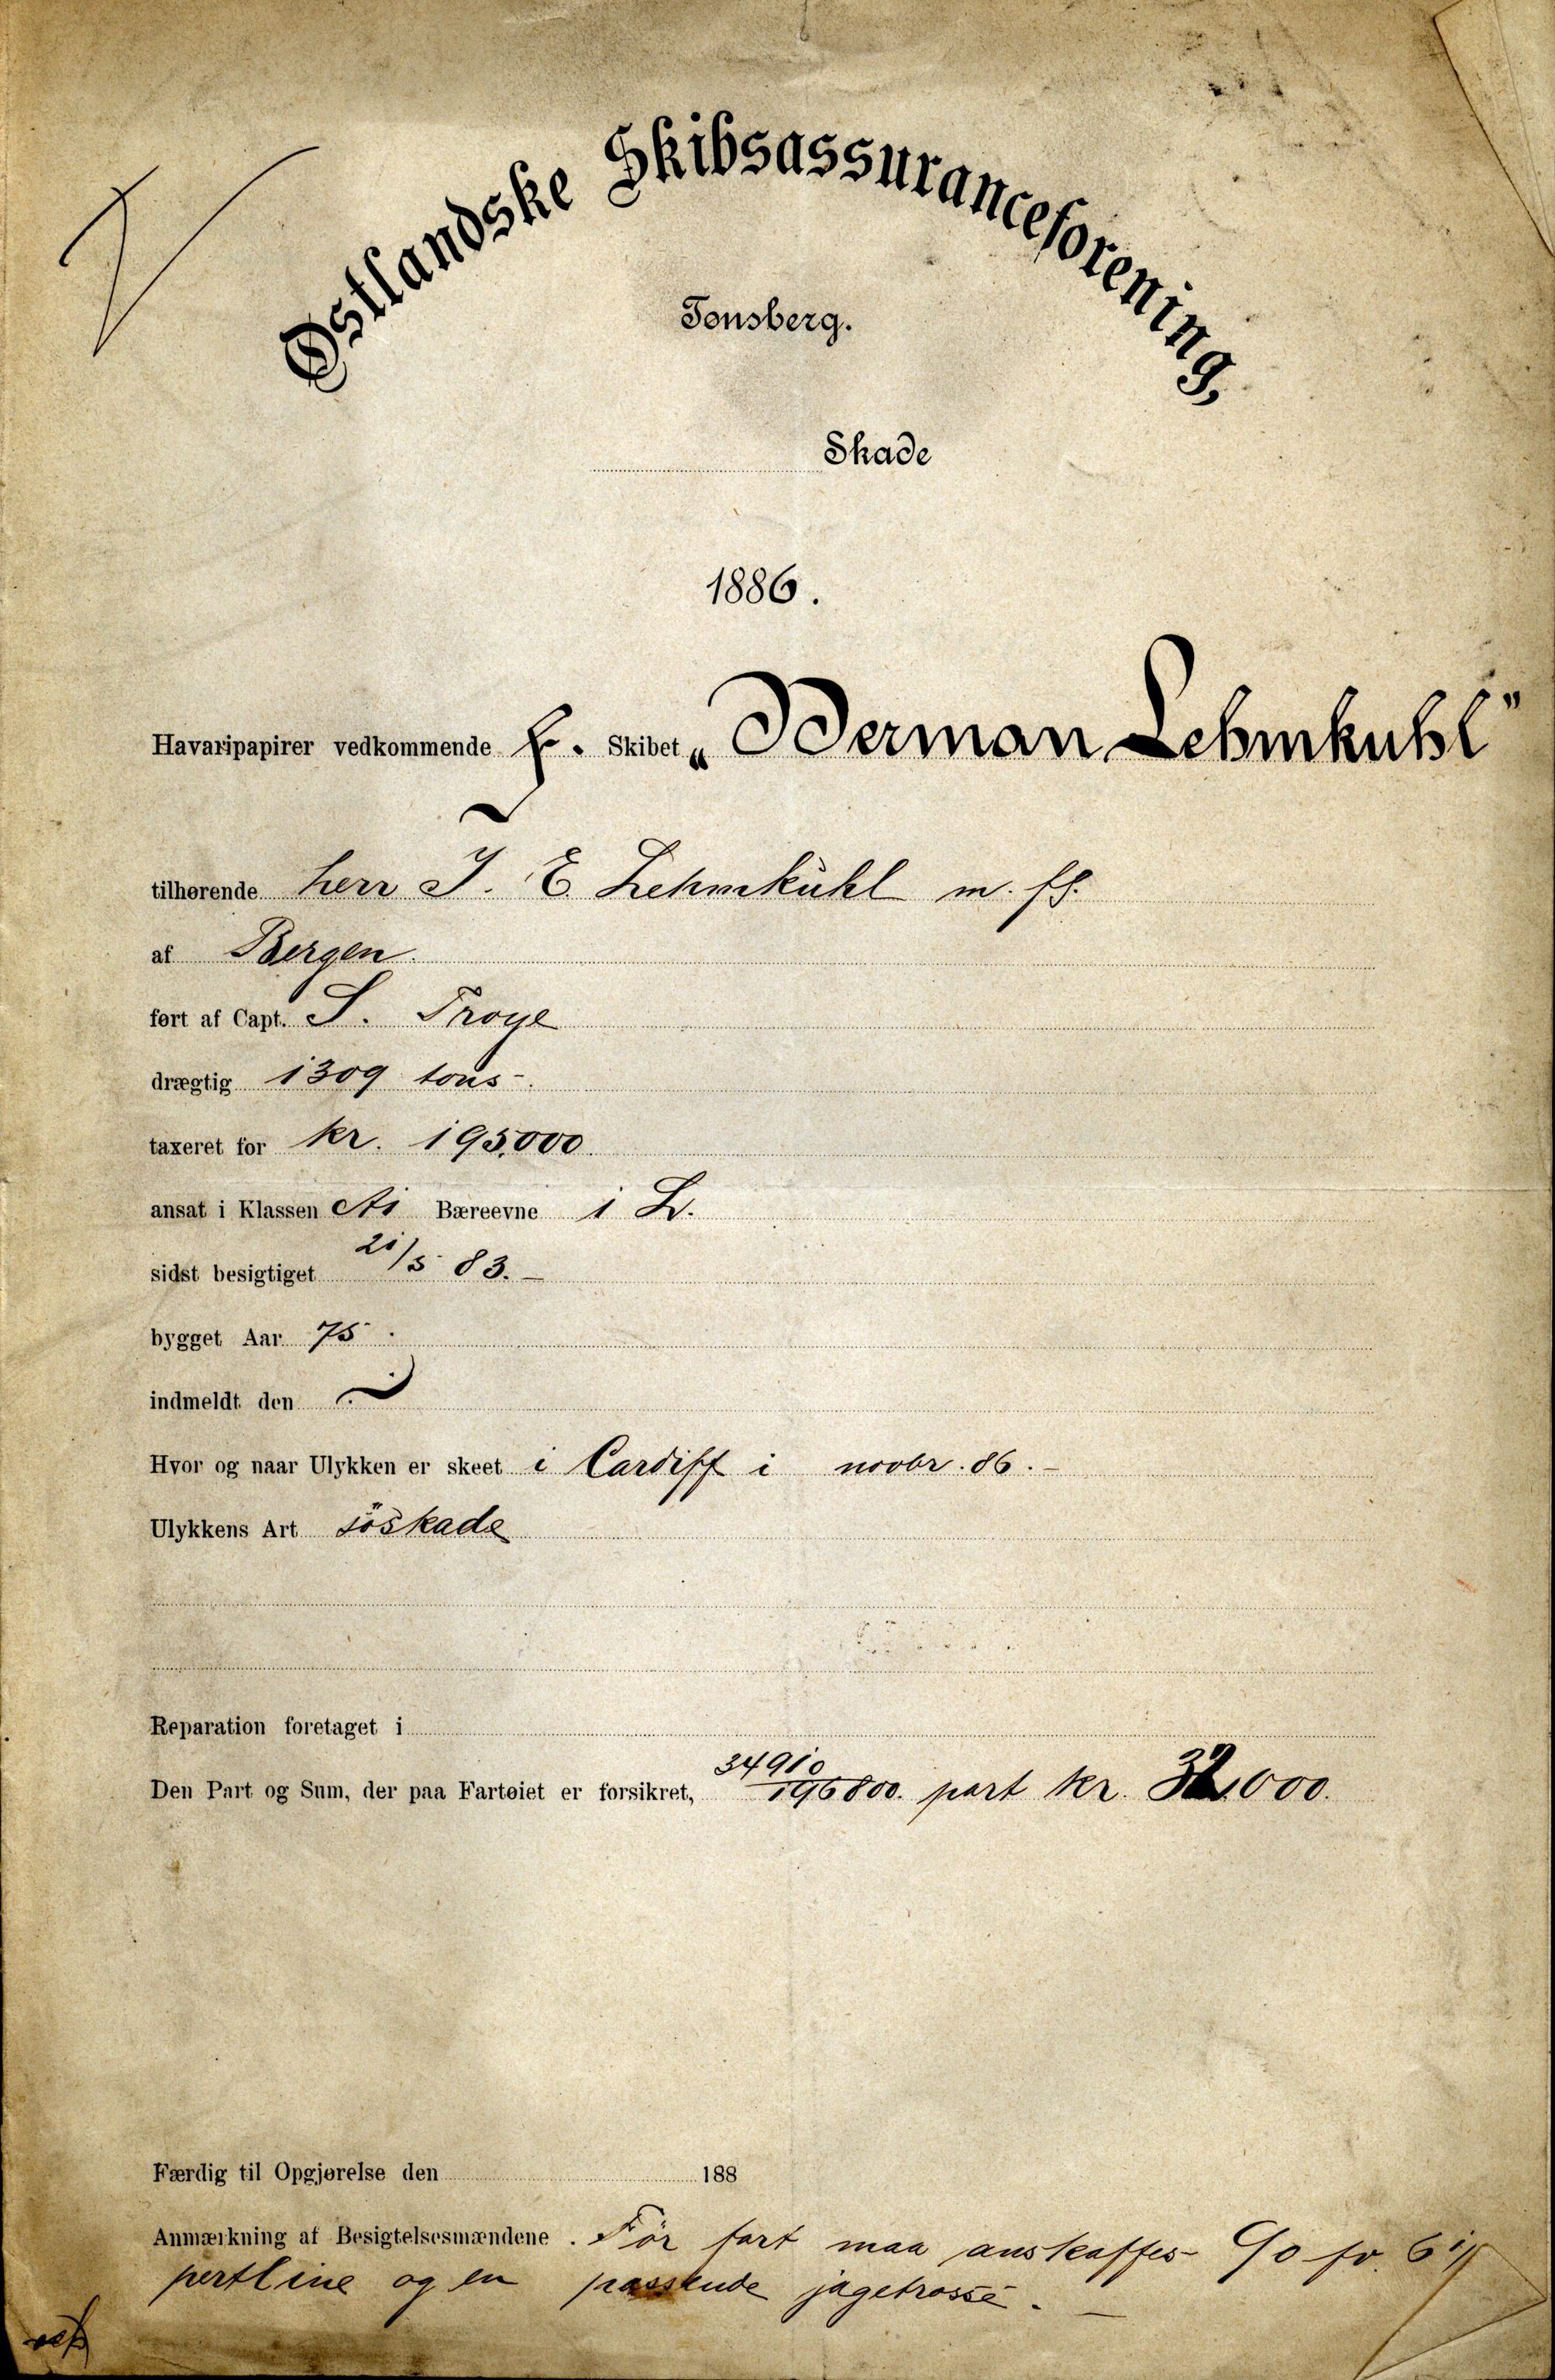 Østlandske Skibsassuranceforening,
Tønsberg.
Skade
1886.
Havaripapirer vedkommende F. Skibet „Herman Lehmkuhl"
tilhørende herr J. E. Lehmkühl m. fl.
af Bergen.
ført af Capt. S. Troye
drægtig 1309 tons.
taxeret for kr. 195,000.
ansat i Klassen A1 Bæreevne 1 L.
sidst besigtiget 21/5 83.—
bygget Aar 75.
indmeldt den
Hvor og naar Ulykken er skeet i Cardiff i novbr. 86.—
Ulykkens Art söskade
Reparation foretaget i
Den Part og Sum, der paa Fartøiet er forsikret, 34910/196800. part kr. .000.
Færdig til Opgjørelse den 188
Anmærkning af Besigtelsesmændene. För fart maa anskaffes 90 fv. 6"
pertline og en passende jagetrosse.—